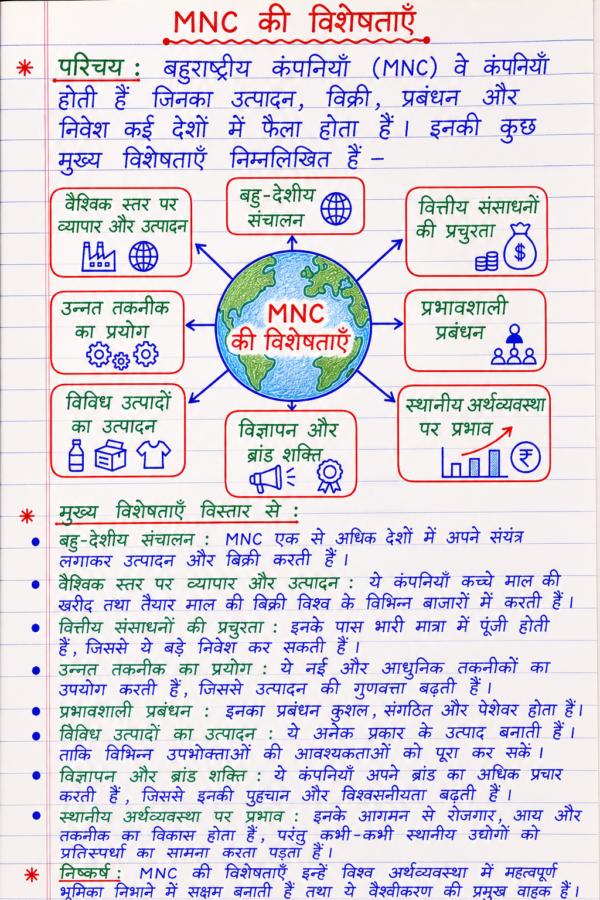 MNC की विशेषताएँ
* परिचय : बहुराष्ट्रीय कंपनियाँ (MNC) वे कंपनियाँ
होती हैं जिनका उत्पादन, विक्री, प्रबंधन और
निवेश कई देशों में फैला होता हैं। इनकी कुछ
मुख्य विशेषताएँ निम्नलिखित हैं –
वैश्विक स्तर पर
व्यापार और उत्पादन
बहु-देशीय
संचालन
वित्तीय संसाधनों
की प्रचुरता
$
उन्नत तकनीक
का प्रयोग
MNC
की विशेषताएँ
प्रभावशाली
प्रबंधन
विविध उत्पादों
का उत्पादन
विज्ञापन और
ब्रांड शक्ति
स्थानीय अर्थव्यवस्था
पर प्रभाव
₹
* मुख्य विशेषताएँ विस्तार से :
• बहु-देशीय संचालन : MNC एक से अधिक देशों में अपने संयंत्र
लगाकर उत्पादन और बिक्री करती हैं।
• वैश्विक स्तर पर व्यापार और उत्पादन : ये कंपनियाँ कच्चे माल की
खरीद तथा तैयार माल की बिक्री विश्व के विभिन्न बाजारों में करती हैं।
• वित्तीय संसाधनों की प्रचुरता : इनके पास भारी मात्रा में पूंजी होती
हैं, जिससे ये बड़े निवेश कर सकती हैं।
• उन्नत तकनीक का प्रयोग : ये नई और आधुनिक तकनीकों का
उपयोग करती हैं, जिससे उत्पादन की गुणवत्ता बढ़ती हैं।
• प्रभावशाली प्रबंधन : इनका प्रबंधन कुशल, संगठित और पेशेवर होता हैं।
• विविध उत्पादों का उत्पादन : ये अनेक प्रकार के उत्पाद बनाती हैं।
ताकि विभिन्न उपभोक्ताओं की आवश्यकताओं को पूरा कर सकें।
• विज्ञापन और ब्रांड शक्ति : ये कंपनियाँ अपने ब्रांड का अधिक प्रचार
करती हैं, जिससे इनकी पुहचान और विश्वसनीयता बढ़ती हैं।
• स्थानीय अर्थव्यवस्था पर प्रभाव : इनके आगमन से रोजगार, आय और
तकनीक का विकास होता हैं, परंतु कभी-कभी स्थानीय उद्योगों को
प्रतिस्पर्धा का सामना करता पड़ता हैं।
* निष्कर्ष : MNC की विशेषताएँ इन्हें विश्व अर्थव्यवस्था में महत्वपूर्ण
भूमिका निभाने में सक्षम बनाती हैं तथा ये वैश्वीकरण की प्रमुख वाहक हैं।